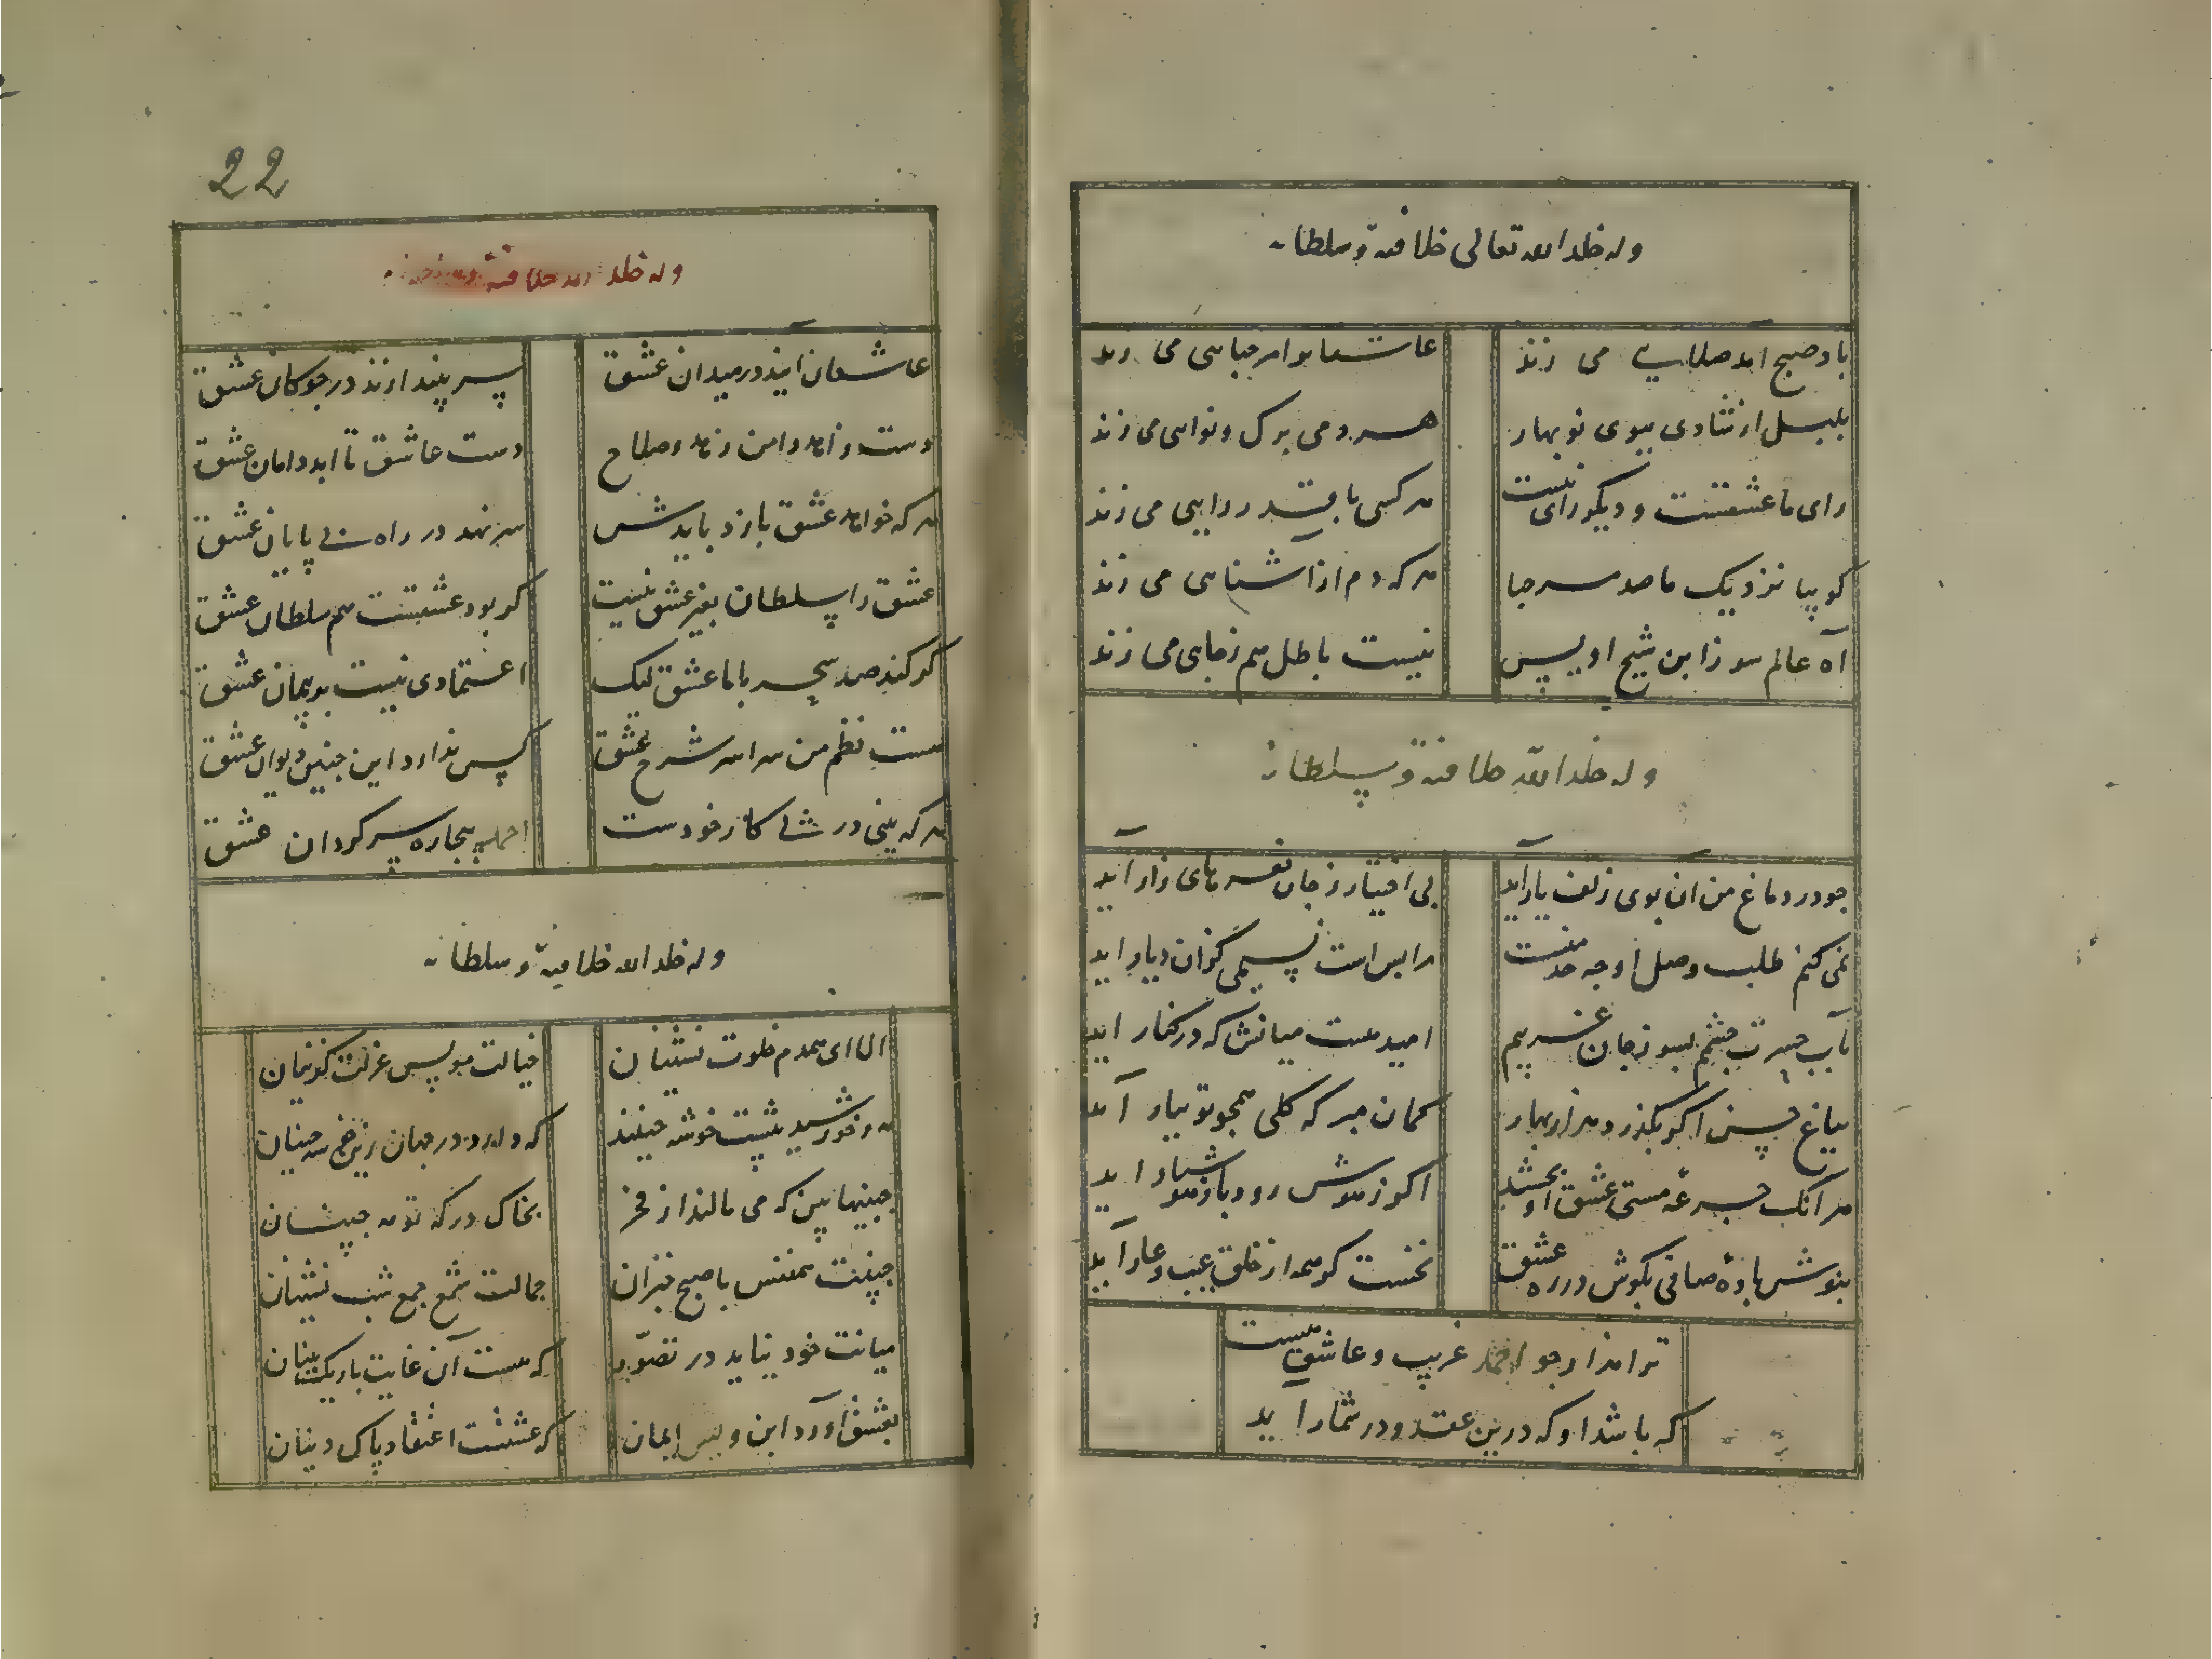 وله خلد الله تعالی خلافته و سلطانه
باد صبح آمد صلایی می زند
عاشقانرا مرحبایی می زند
بلبل از شادی ببوی نوبهار
هر دمی برک و نوایی می زند
رای ما عشقست و دیکر رای نیست
هر کسی با قدر رایی می زند
کو بیا نزدیک ما صد مرحبا
هر که دم از آشنایی می زند
آه عالم سوز ابن شیخ اویس
نیست باطل هم زجایی می زند
وله خلد الله خلافته و سلطانه
جو در دماغ من آن بوی زلف یار آید
بی اختیار ز جان نعره های زار آید
نمی کنم طلب وصل او جه حد منست
مرا بس است نسیمی کزان دیار آید
بآب حسرت جشمم بسوز جان غریم
امید هست میانش که در کنار آید
بباغ حسن اکر بکذرد هزار بهار
کمان مبر که کلی همجو تو ببار آید
هر آنک جرعه مستی عشق او بخشید
اکر ز هوش رود باز هوشیار آید
بنوش باده صافی بکوش در ره عشق
نخست کر همه از خلق عیب و عار آید
ترا هزار جو احمد غریب و عاشق هست
که باشد او که درین عقد و در شمار آید
22
وله خلد الله خلافته و سلطانه
عاشقان آیند در میدان عشق
سر بیندازند در جوکان عشق
دست زاهد دامن زهد و صلاح
دست عاشق تا ابد دامان عشق
هر که خواهد عشق بازد بایدش
سر نهد در راه بی پایان عشق
عشق را سلطان بغیر عشق نیست
کر بود عشقست هم سلطان عشق
کر کند صد سحر با ما عشق لیک
اعتمادی نیست بر پیمان عشق
هست نظم من سراسر شرح عشق
کس ندارد این جنین دیوان عشق
هر که بینی در پی کار خودست
احمد بیجاره سرکردان عشق
وله خلد الله خلافته و سلطانه
الا ای همدم خلوت نشینان
خیالت مونس عزلت کزینان
مه و خورشید پیشت خوشه جینند
که دارد در جهان زین خوشه جینان
جبینها بین که می مالند از فخر
بخاک درکه تو مه جبینان
جبینت همنفس با صبح خیزان
جمالت شمع جمع شب نشینان
میانت خود نیاید در تصور
که هست آن غایت باریک بینان
بعشق آورد ابن ویس ایمان
که عشقست اعتقاد پاک دینان